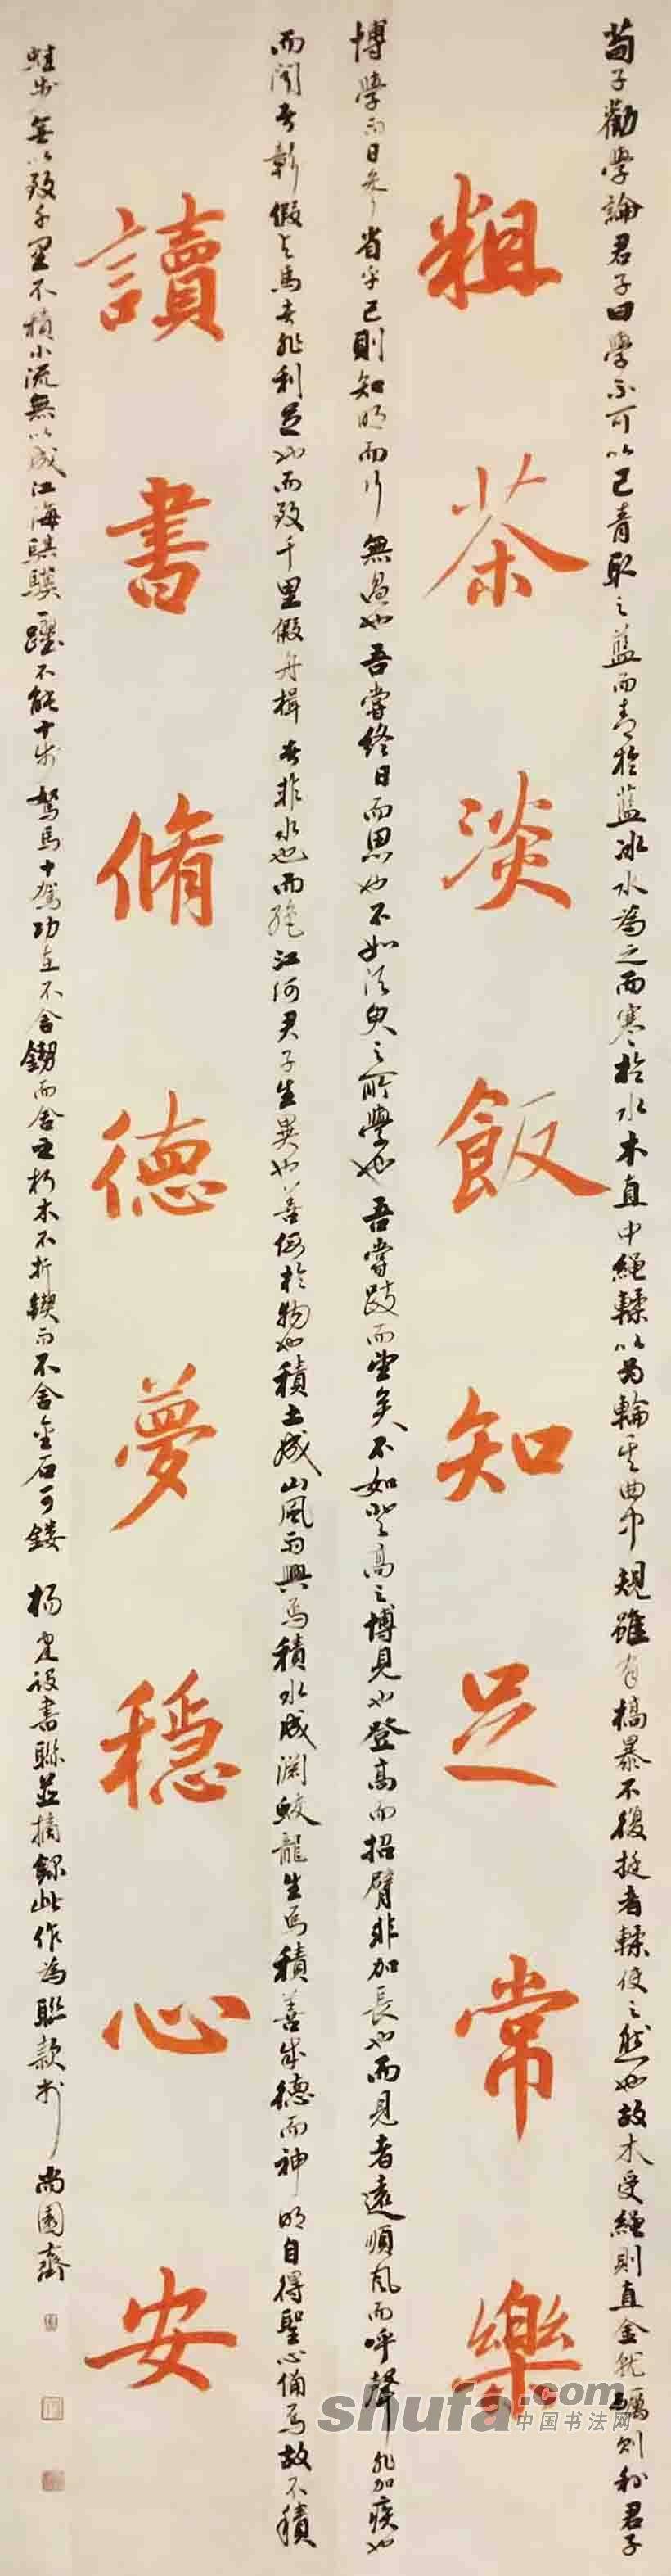 荀子勸學論君子曰學不可以已青取之藍而青於藍冰水為之而寒於水木直中繩輮以為輪其曲中規雖有槁暴不復挺者輮使之然也故木受繩則直金就礪則利君子
粗茶淡飯知足常樂
博學而日參省乎己則知明而行無過也吾嘗終日而思也不如須臾之所學也吾嘗跂而望矣不如登高之博見也登高而招臂非加長也而見者遠順風而呼聲非加疾也
而聞者彰假輿馬者非利足也而致千里假舟楫者非水也而絕江河君子生異也善假於物也積土成山風雨興焉積水成淵蛟龍生焉積善成德而神明自得聖心備焉故不積
讀書脩德夢穩心安
蛙步無以致千里不積小流無以成江海騏驥一躍不能十步駑馬十駕功在不舍鍥而舍之朽木不折鍥而不舍金石可鏤 楊建設書聯並摘錄此作為聯款於尚園齋
shufa.com
中国书法网